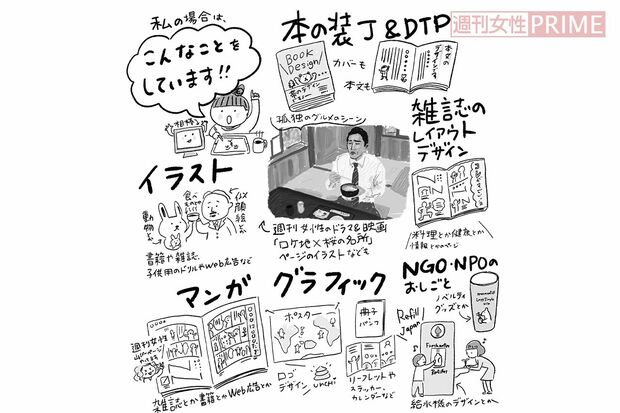 週刊女性PRIME
私の場合は、
こんなことを
しています!!
相棒
本の装丁&DTP
BOOK
Design
カバーも
本文も
本文の
デザインも
孤独のグルメのシーン
雑誌の
レイアウト
デザイン
料理とか健康とか
情報とかのページ
イラスト
食べもの
似顔絵
動物
書籍や雑誌、
子供用のドリルやWeb広告など
週刊女性のドラマ&映画
「ロケ地×桜の名所」
ページのイラストなども
マンガ
週刊女性
雑誌とか書籍とかWeb広告とか
グラフィック
ポスター
冊子
パンフ
ロゴ
デザイン
UNCHI
リーフレットや
ステッカー、
カレンダーなど
NGO・NPOの
おしごと
ノベルティ
グッズとか
Refill
Japan
給水機のデザインとか